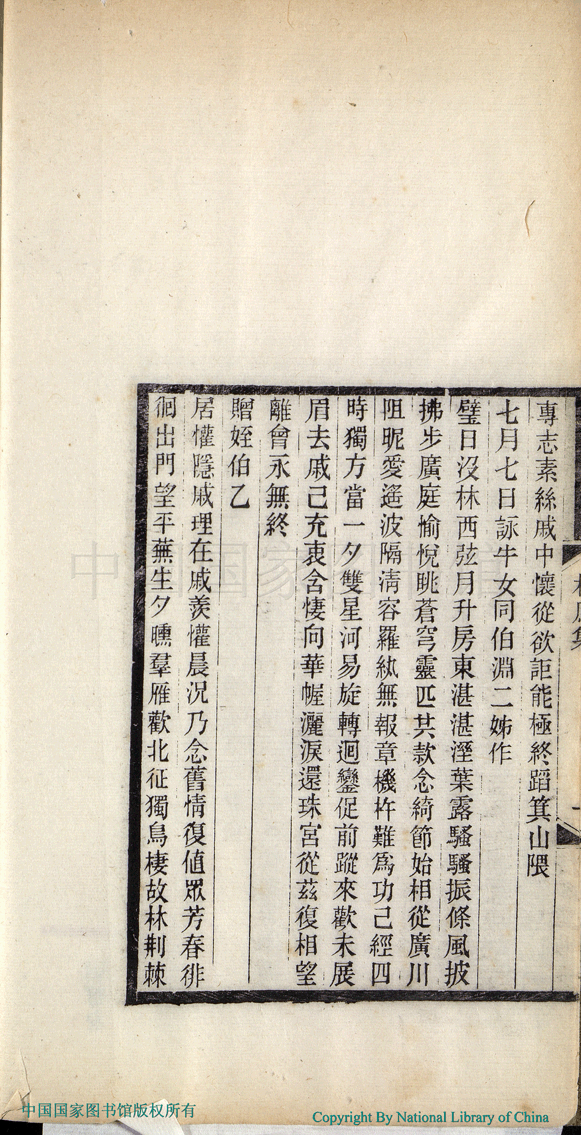 專志素絲戚中懷從欲詎能極終蹈箕山隈
七月七日詠牛女同伯淵二姊作
璧日沒林西弦月升房東湛湛溼葉露騷騷振條風披
拂步廣庭愉悅眺蒼穹靈匹其款念綺節始相從廣川
阻昵愛遙波隔清容羅紈無報章機杼難為功已經四
時獨方當一夕雙星河易旋轉迴鑾促前蹤來歡未展
眉去戚已充衷含悽向華幄灑淚還珠宮從茲復相望
離會永無終
贈姪伯乙
居懽隱戚理在戚羨懽晨況乃念舊情復值眾芳春徘
徊出門望平蕪生夕曛羣雁歡北征獨鳥棲故林荆棘
中国国家图书馆
中国国家图书馆版权所有
Copyright By National Library of China